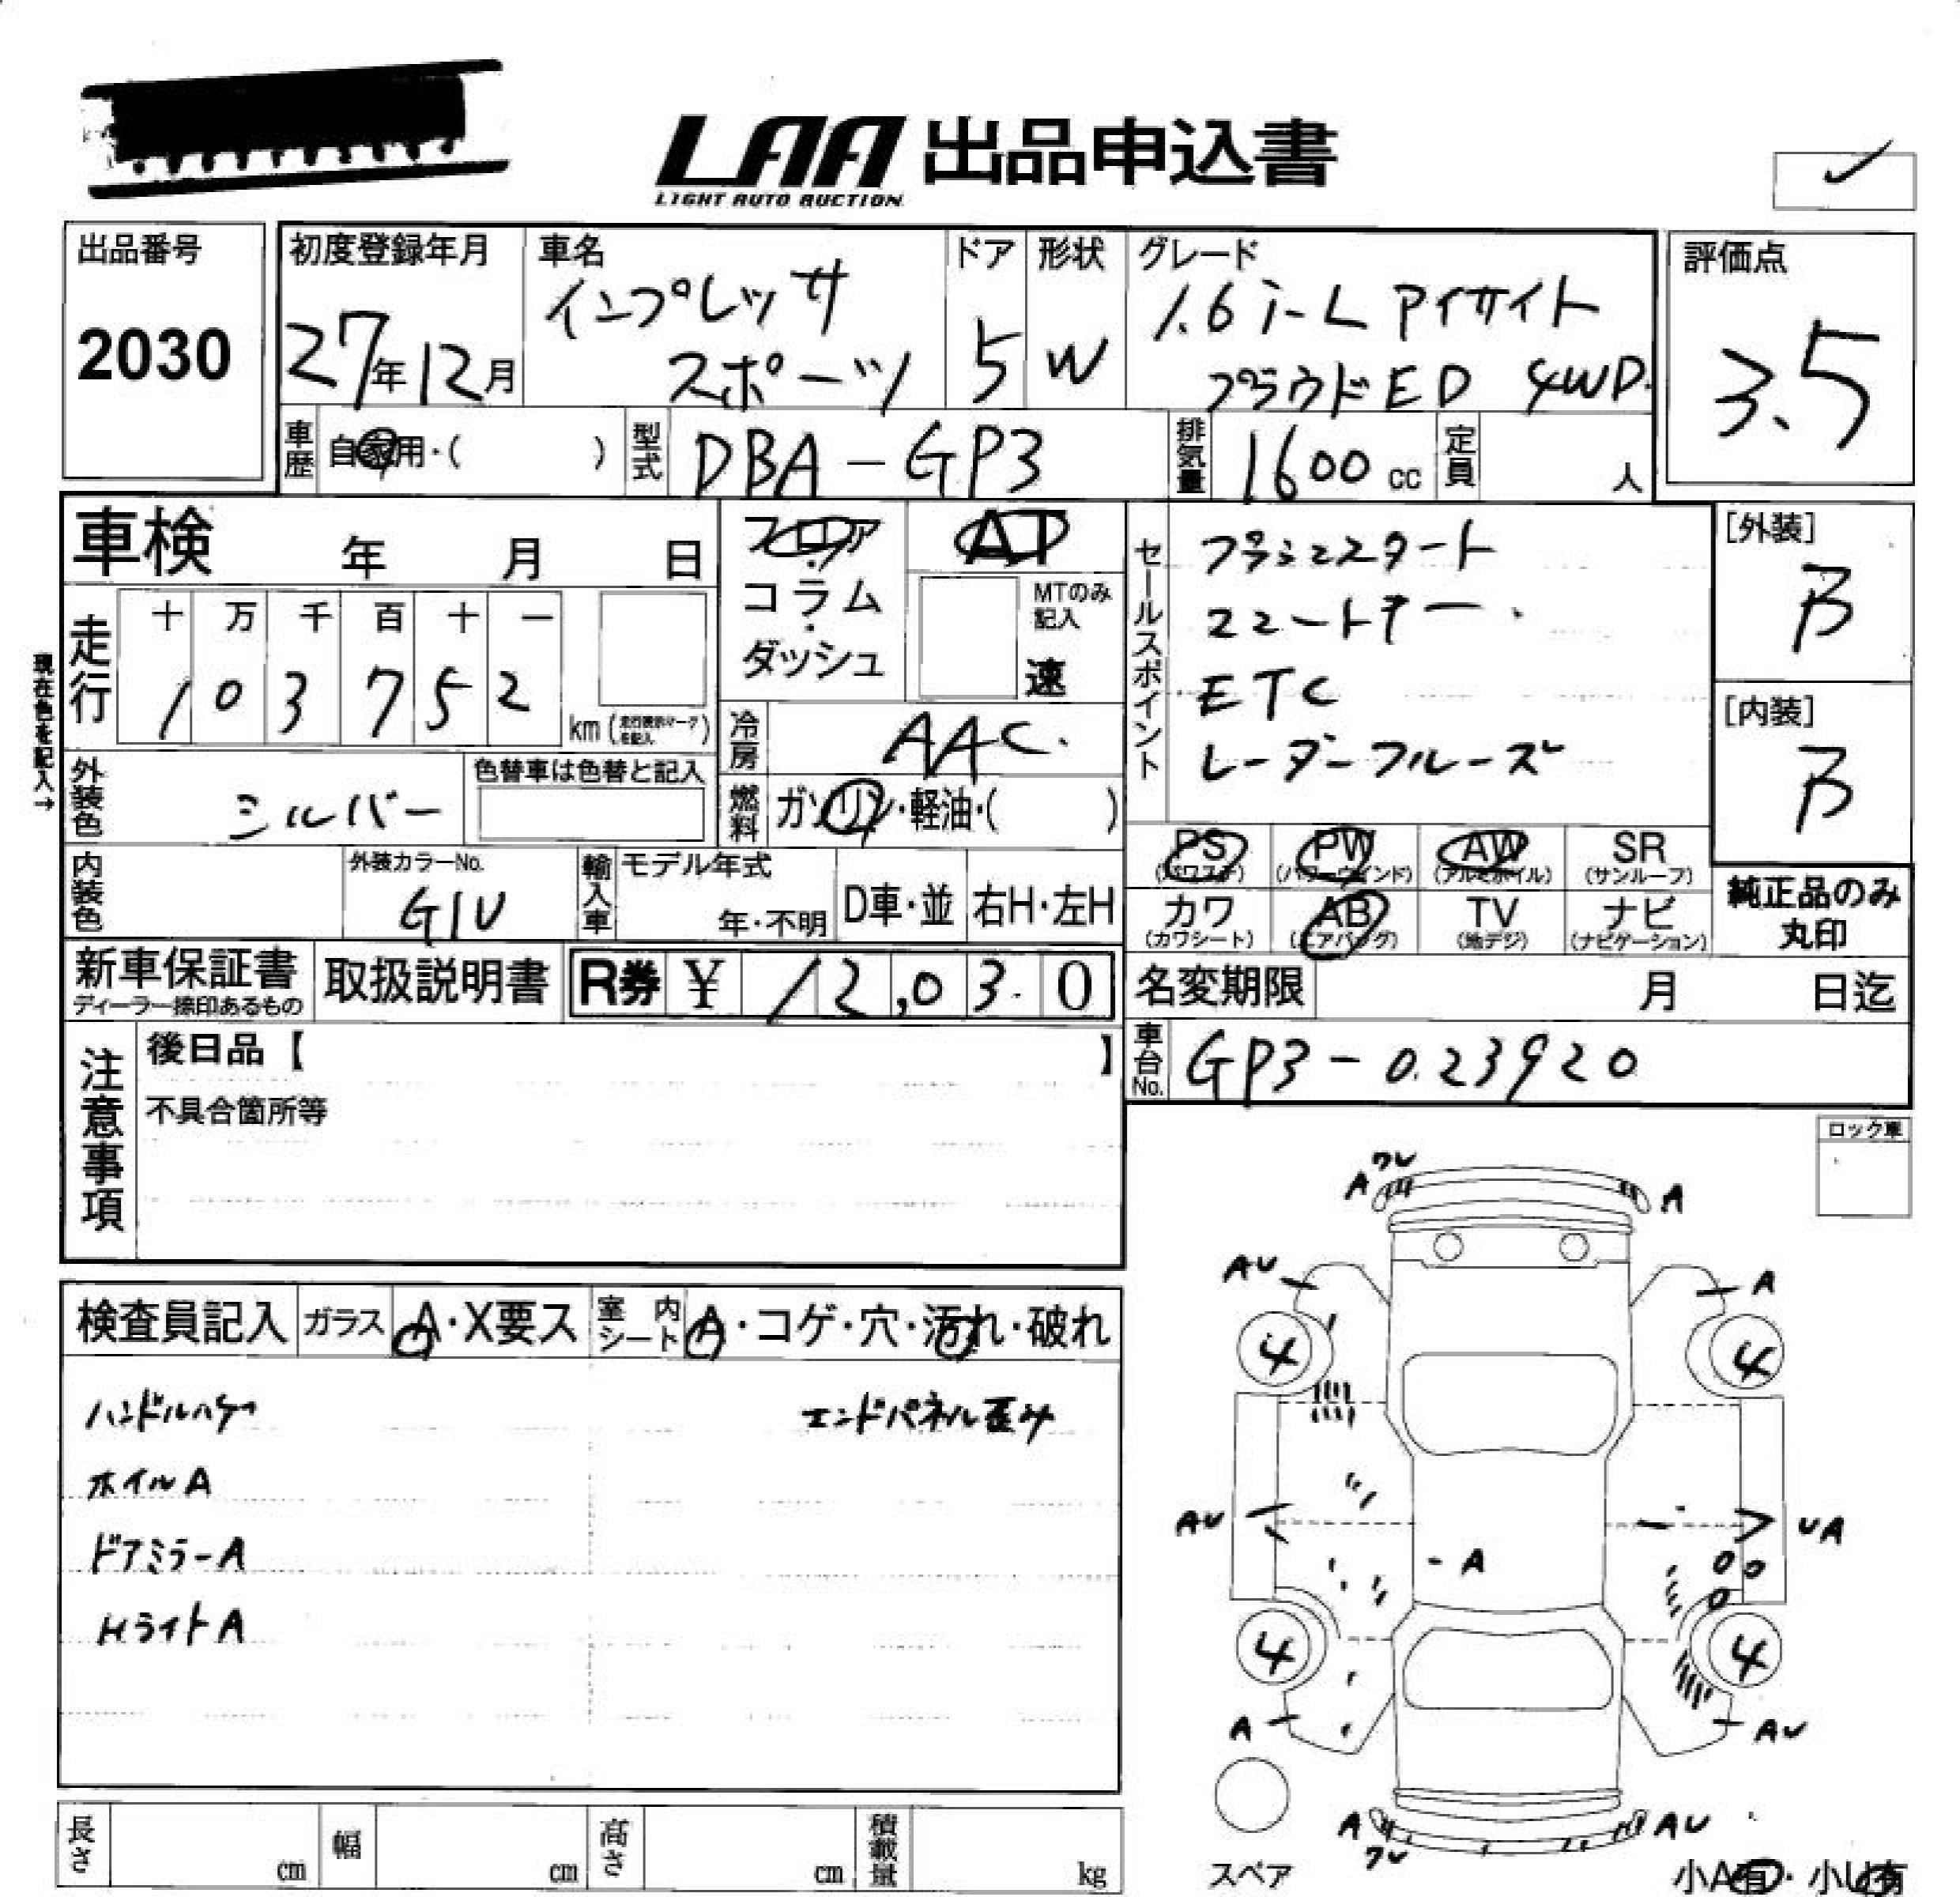 LAA 出品申込書
LIGHT AUTO AUCTION
出品番号
2030
初度登録年月
27年12月
車名
インプレッサ
スポーツ
ドア
5
形状
W
グレード
1.6i-L アイサイト
プラウドED 4WD.
評価点
3.5
車歴
自家用・( )
型式
DBA-GP3
排気量
1600cc
定員
人
車検 年 月 日
現在色を記入→
走行
十 万 千 百 十 一
1 0 3 7 5 2
km(走行表示マークを記入)
フロア・コラム・ダッシュ
AT
MTのみ記入
速
冷房
AAC.
燃料
ガソリン・軽油・( )
外装色
シルバー
色替車は色替と記入
内装色
外装カラーNo.
G1U
輸入車
モデル年式
年・不明
D車・並
右H・左H
セールスポイント
プッシュスタート
スマートキー.
ETC
レーダークルーズ
[外装]
B
[内装]
B
PS PW AW SR
(パワステ) (パワーウインド) (アルミホイル) (サンルーフ)
カワ AB TV ナビ
(カワシート) (エアバッグ) (地デジ) (ナビゲーション)
純正品のみ
丸印
新車保証書
ディーラー捺印あるもの
取扱説明書
R券 ¥ 12,030
名変期限 月 日迄
注意事項
後日品【 】
不具合箇所等
車台No.
GP3-023920
ロック車
検査員記入
ガラス
A・X要ス
室内シート
A・コゲ・穴・汚れ・破れ
ハンドルハゲ
エンドパネル歪み
ホイルA
ドアミラーA
HライトA
A ワレ
A
AU
A
4
4
AU
UA
A
4
4
A
AU
A
ワレ
AU
スペア
小A有・小U有
長さ cm
幅 cm
高さ cm
積載量 kg